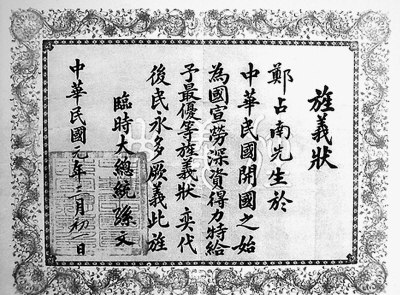 旌義狀
鄭占南先生於
中華民國開國之始
為國宣勞深資得力特給
予最優等旌義狀奕代
後民永多厥義此旌
臨時大總統孫文
中華民國元年三月初一日